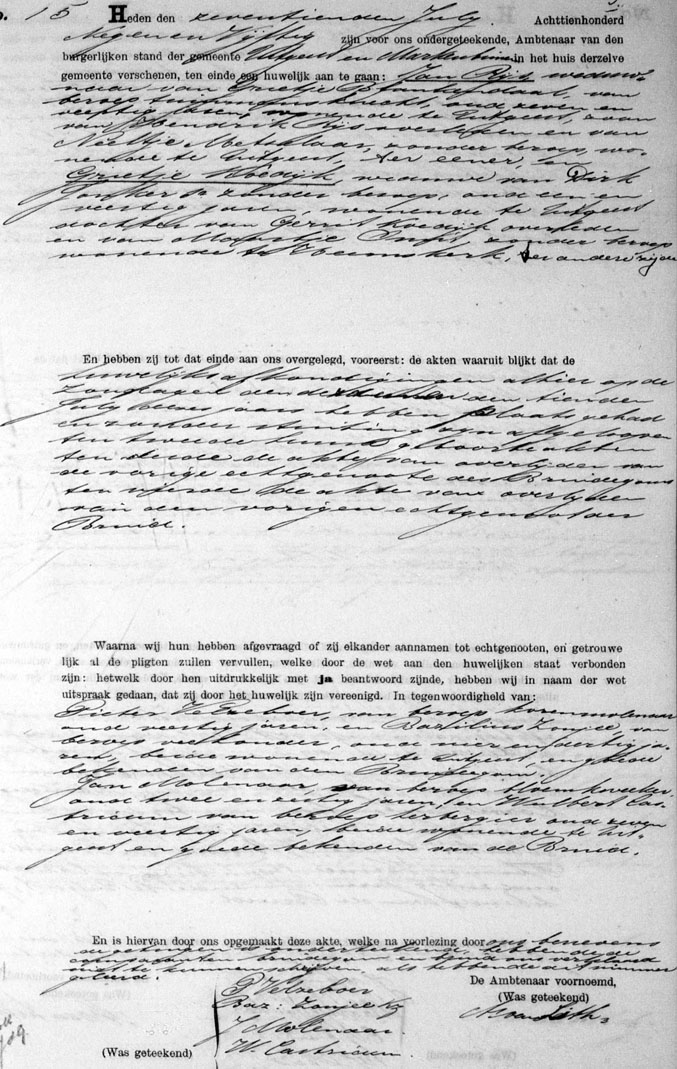 15 Heden den zeventienden July Achttienhonderd
Negen en Vijftig zijn voor ons ondergeteekende, Ambtenaar van den
burgerlijken stand der gemeente Uitgeest en Markenbinnen in het huis derzelve
gemeente verschenen, ten einde een huwelijk aan te gaan: Jan Rijs weduw-
naar van Grietje van
beroep oud zeven en
veertig jaren, wonende te Uitgeest, zoon
van Hendrik Rijs overleden en van
Neeltje Metselaar, zonder beroep, wo-
nende te Uitgeest, ter eener, en
Grietje Koedijk weduwe van Dirk
zonder beroep, oud een en
veertig jaren, wonende te Uitgeest
dochter van Gerrit Koedijk overleden
en van Maartje zonder beroep
wonende te Heemskerk, ter andere zijde
En hebben zij tot dat einde aan ons overgelegd, vooreerst: de akten waaruit blijkt dat de
huwelijksafkondigingen alhier op de
Zondagen den den tienden
July dezes jaars hebben plaats gehad
en zonder stuiting zijn afgeloopen
ten tweede hunne geboorteakten
ten derde de akte van overlijden van
de vorige echtgenoote des Bruidegoms
ten vierde de akte van overlijden
van den vorigen echtgenoot der
Bruid.
Waarna wij hun hebben afgevraagd of zij elkander aannamen tot echtgenooten, en getrouwe
lijk al de pligten zullen vervullen, welke door de wet aan den huwelijken staat verbonden
zijn: hetwelk door hen uitdrukkelijk met ja beantwoord zijnde, hebben wij in naam der wet
uitspraak gedaan, dat zij door het huwelijk zijn vereenigd. In tegenwoordigheid van:
Pieter van beroep korenmolenaar
oud veertig jaren, en Bazilius Zonjee, van
beroep veehouder, oud vier en dertig ja-
ren, beide wonende te Uitgeest, en goede
bekenden van den Bruidegom,
Jan Molenaar, van beroep
oud twee en jaren, en Wulbert Cas-
tricum van beroep herbergier oud zeven
en veertig jaren, beide wonende te Uit-
geest en goede bekenden van de Bruid.
En is hiervan door ons opgemaakt deze akte, welke na voorlezing door ons benevens
de getuigen is onderteekend, hebbende de
comparanten Bruidegom en Bruid ons verklaard
niet te kunnen schrijven als hebbende dat nimmer
geleerd.
De Ambtenaar voornoemd,
(Was geteekend)
Baz: Zonjee
J Molenaar
(Was geteekend) W. Castricum